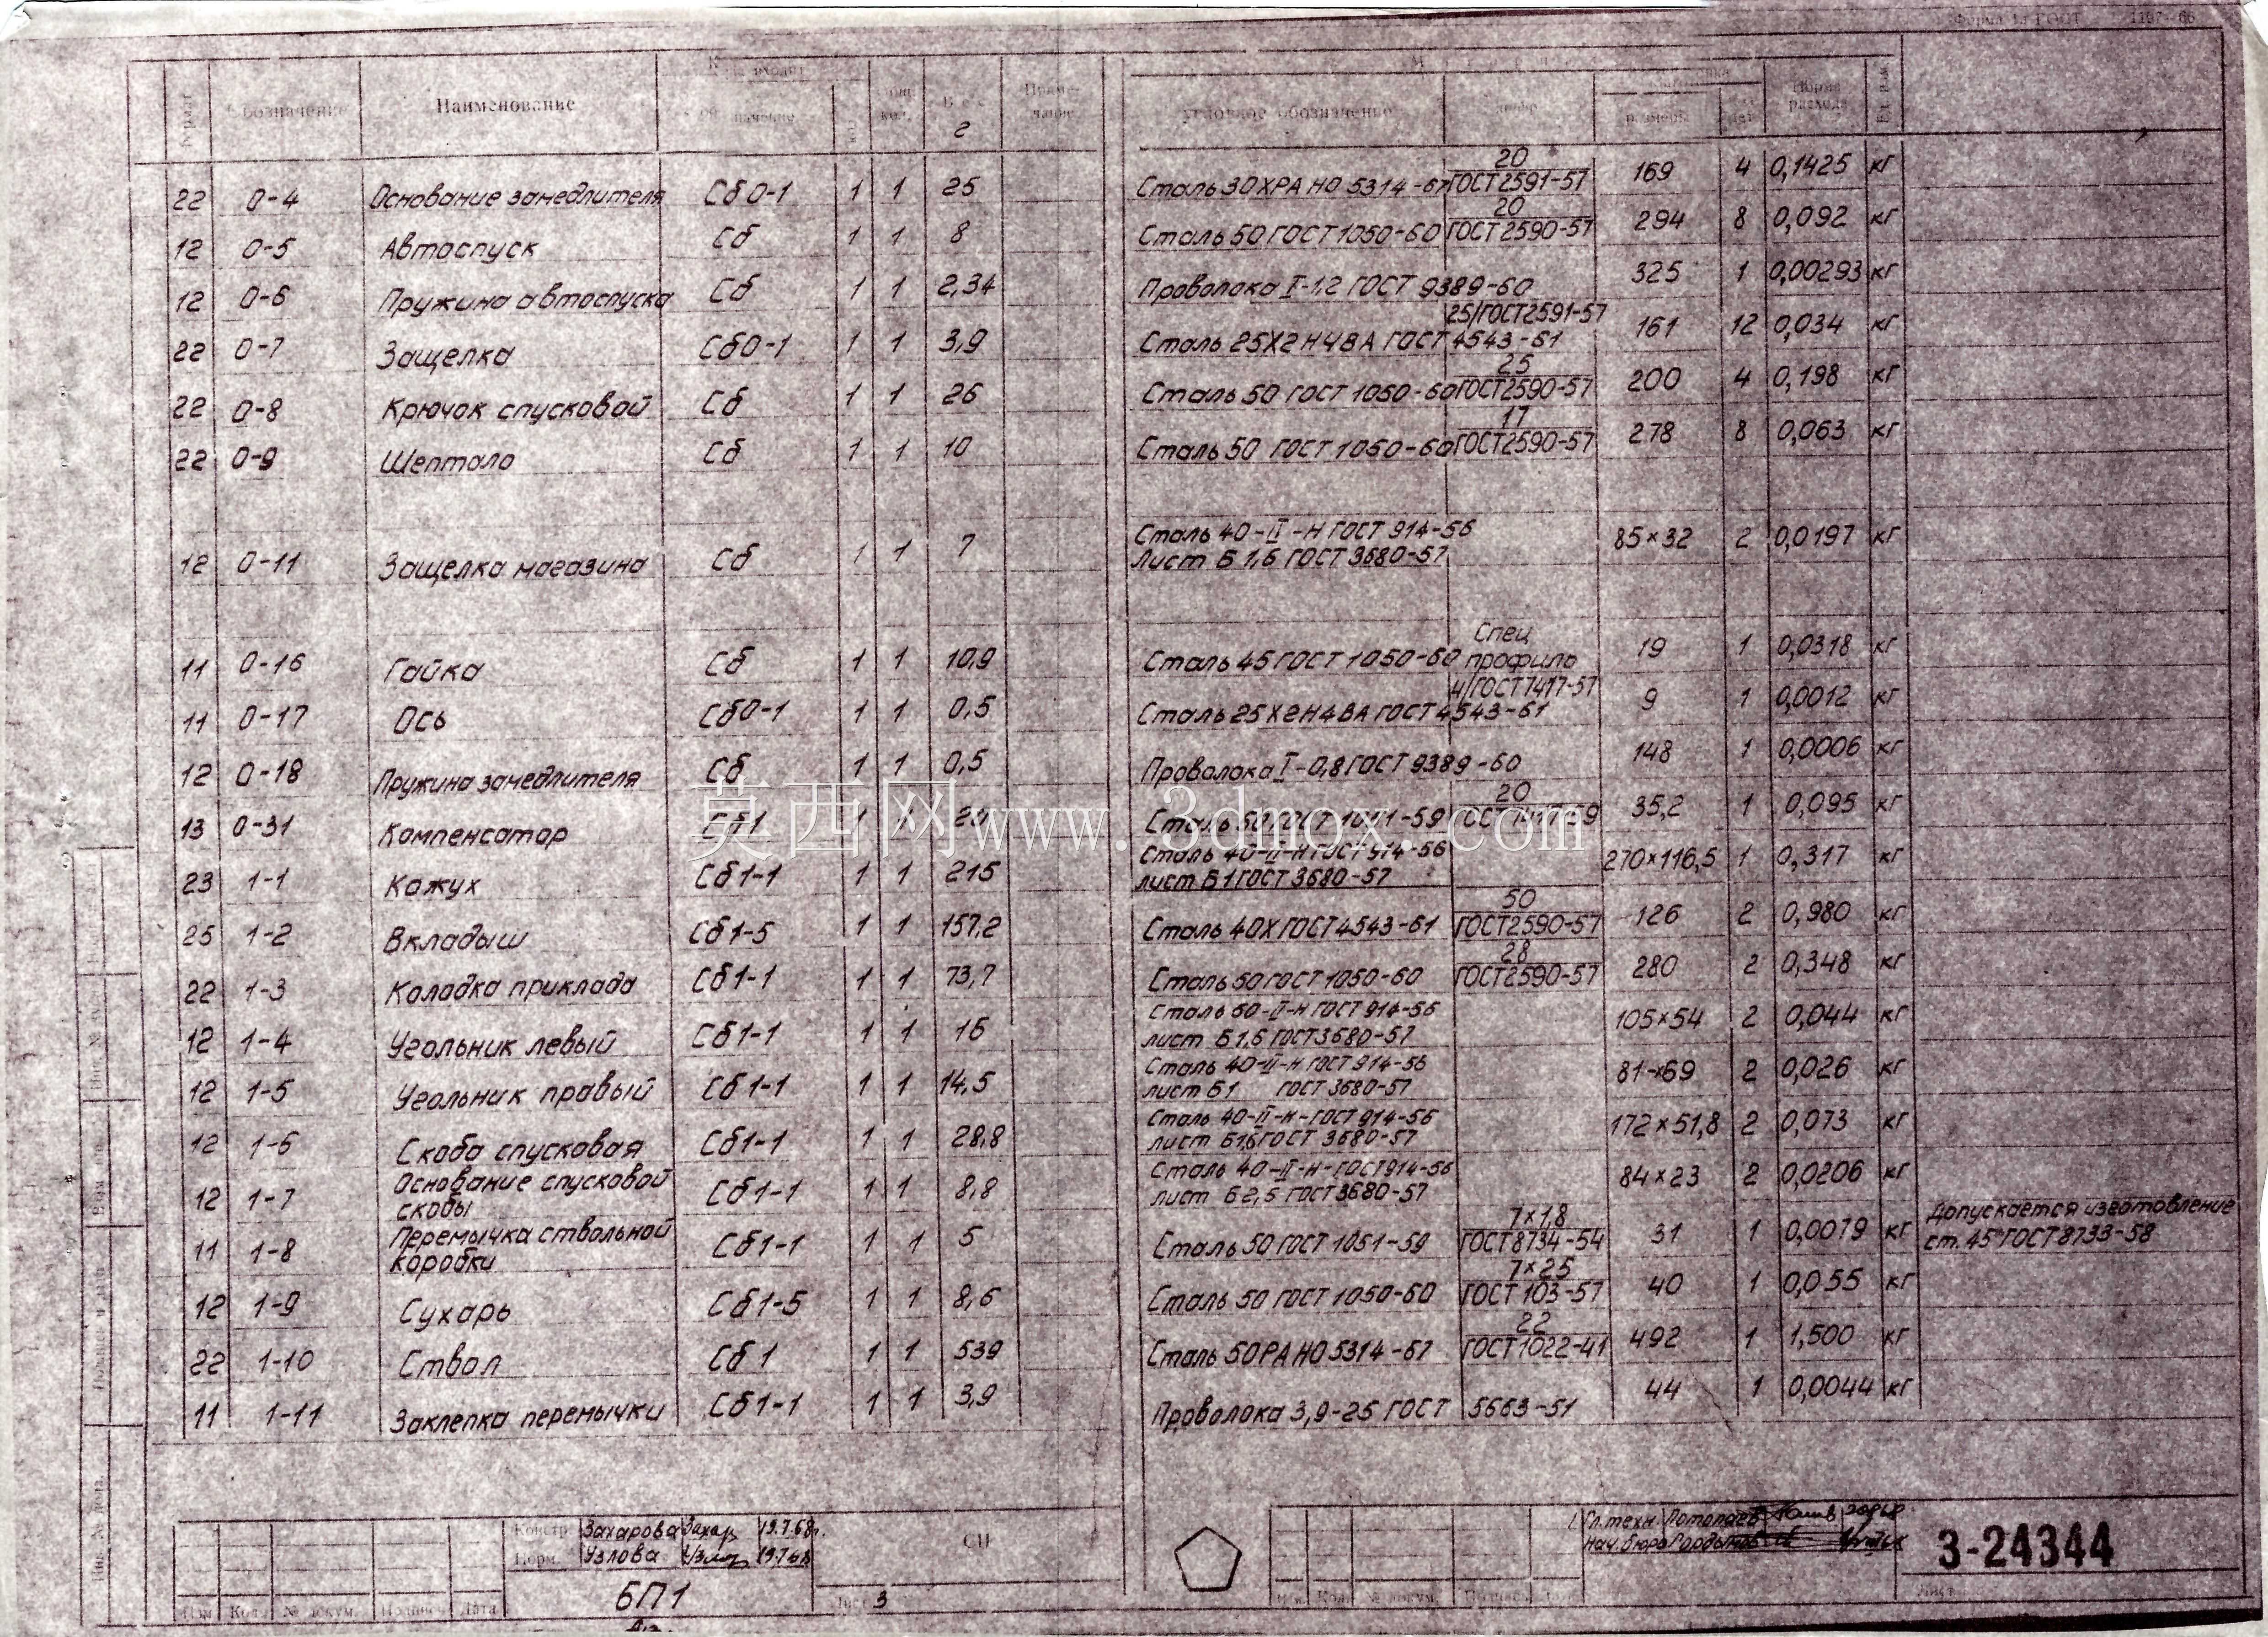 Форма 11 ГОСТ 1107-66
Обозначение Наименование Куда входит кол. Общ. кол. Вес г Приме- чание условное обозначение размеры Норма расхода
22 0-4 Основание замедлителя Сб 0-1 1 1 25 Сталь 30ХРА НО 5314-67 20/ГОСТ 2591-57 169 4 0,1425 кг
12 0-5 Автоспуск Сб 1 1 8 Сталь 50 ГОСТ 1050-60 20/ГОСТ 2590-57 294 8 0,092 кг
12 0-6 Пружина автоспуска Сб 1 1 2,34 Проволока I-1,2 ГОСТ 9389-60 325 1 0,00293 кг
22 0-7 Защелка Сб0-1 1 1 3,9 Сталь 25Х2Н4ВА ГОСТ 4543-61 25/ГОСТ2591-57 161 12 0,034 кг
22 0-8 Крючок спусковой Сб 1 1 26 Сталь 50 ГОСТ 1050-60 25/ГОСТ2590-57 200 4 0,198 кг
22 0-9 Шептало Сб 1 1 10 Сталь 50 ГОСТ 1050-60 17/ГОСТ2590-57 278 8 0,063 кг
12 0-11 Защелка магазина Сб 1 1 7 Сталь 40-II-Н ГОСТ 914-56 85×32 2 0,0197 кг
Лист Б 1,6 ГОСТ 3680-57
11 0-16 Гайка Сб 1 1 10,9 Сталь 45 ГОСТ 1050-60 Спец профиль 19 1 0,0318 кг
11 0-17 Ось Сб0-1 1 1 0,5 Сталь 25Х2Н4ВА ГОСТ 4543-61 4/ГОСТ7417-57 9 1 0,0012 кг
12 0-18 Пружина замедлителя Сб 1 1 0,5 Проволока I-0,8 ГОСТ 9389-60 148 1 0,0006 кг
莫西网www.3dmox.com
13 0-31 Компенсатор Сб1 1 1 Сталь 50 ГОСТ 1051-59 20 35,2 1 0,095 кг
23 1-1 Кожух Сб1-1 1 1 215 Сталь 40-II-Н ГОСТ 914-56 270×116,5 1 0,317 кг
лист Б1 ГОСТ 3680-57
25 1-2 Вкладыш Сб1-5 1 1 157,2 Сталь 40Х ГОСТ 4543-61 50/ГОСТ2590-57 126 2 0,980 кг
22 1-3 Колодка приклада Сб1-1 1 1 73,7 Сталь 50 ГОСТ 1050-60 28/ГОСТ2590-57 280 2 0,348 кг
12 1-4 Угольник левый Сб1-1 1 1 16 Сталь 60-II-Н ГОСТ 914-56 105×54 2 0,044 кг
лист Б1,6 ГОСТ3680-57
12 1-5 Угольник правый Сб1-1 1 1 14,5 Сталь 40-II-Н ГОСТ 914-56 81×69 2 0,026 кг
лист Б1 ГОСТ 3680-57
12 1-6 Скоба спусковая Сб1-1 1 1 28,8 Сталь 40-II-Н-ГОСТ 914-56 172×51,8 2 0,073 кг
лист Б1,6 ГОСТ 3680-57
12 1-7 Основание спусковой скобы Сб1-1 1 1 8,8 Сталь 40-II-Н-ГОСТ914-56 84×23 2 0,0206 кг
лист Б2,5 ГОСТ3680-57
11 1-8 Перемычка ствольной коробки Сб1-1 1 1 5 Сталь 50 ГОСТ 1051-59 7×1,8/ГОСТ8734-54 31 1 0,0079 кг Допускается изготовление ст. 45 ГОСТ 8733-58
12 1-9 Сухарь Сб1-5 1 1 8,6 Сталь 50 ГОСТ 1050-60 7×25/ГОСТ 103-57 40 1 0,055 кг
22 1-10 Ствол Сб 1 1 1 539 Сталь 50РА НО 5314-67 22/ГОСТ1022-41 492 1 1,500 кг
11 1-11 Заклепка перемычки Сб1-1 1 1 3,9 Проволока 3,9-25 ГОСТ 5663-51 44 1 0,0044 кг
Констр. Захарова Захар 19.7.68г.
Норм. Узлова 19.7.68
СП
БП1
Лист 3
Изм Кол. № докум. Подпись Дата
Гл.техн. Потапаев
Нач.бюро
3-24344
Лист